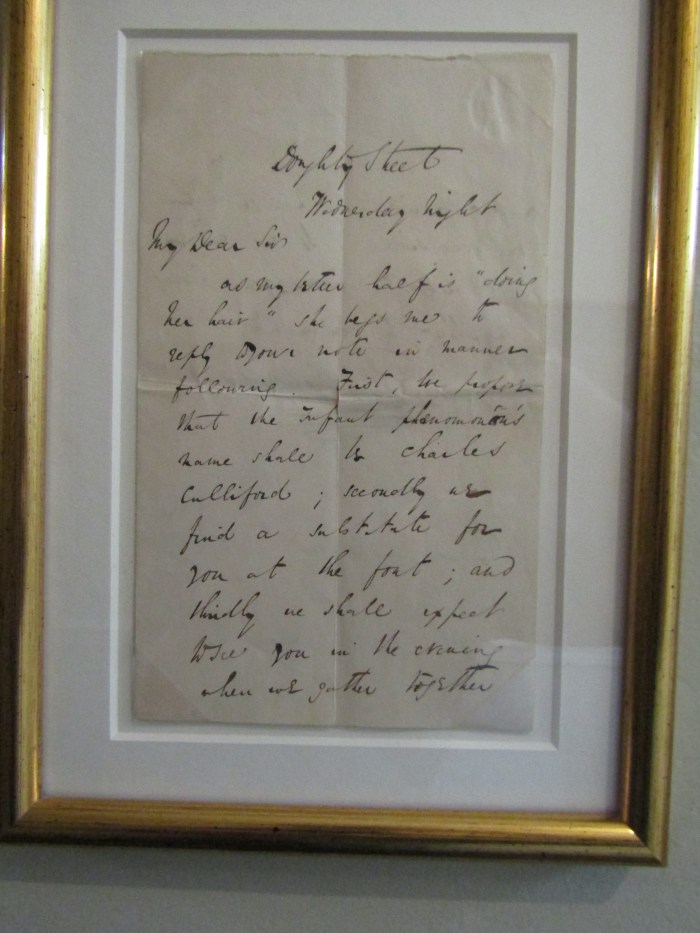 Doughty Street
Wednesday Night
My Dear Sir
as my better half is "doing
her hair" she begs me to
reply to your note in manner
following. First, we propose
that the Infant phenomonon's
name shall be Charles
Culliford; secondly we
find a substitute for
you at the font; and
thirdly we shall expect
to see you in the evening
when we gather together